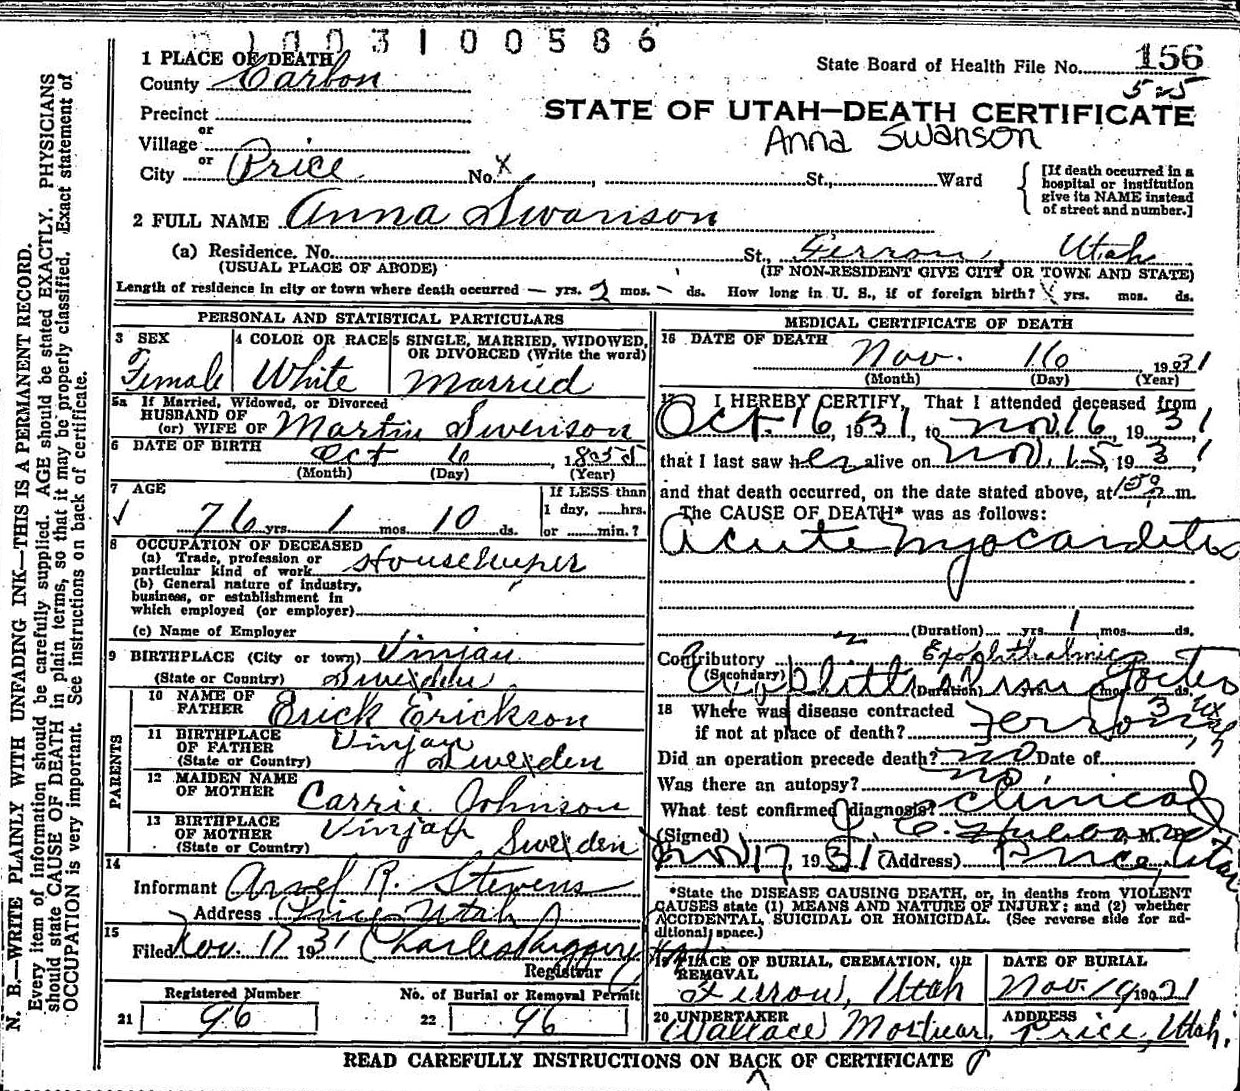 1003100586
1 PLACE OF DEATH
County Carbon
State Board of Health File No. 156
525
Precinct
STATE OF UTAH—DEATH CERTIFICATE
Anna Swanson
or
Village
or
City Price No. X St., Ward
[If death occurred in a hospital or institution give its NAME instead of street and number.]
2 FULL NAME Anna Swanson
(a) Residence. No. St., Ferron, Utah
(USUAL PLACE OF ABODE) (IF NON-RESIDENT GIVE CITY OR TOWN AND STATE)
Length of residence in city or town where death occurred — yrs. 2 mos. - ds. How long in U. S., if of foreign birth? yrs. mos. ds.
PERSONAL AND STATISTICAL PARTICULARS
3 SEX 4 COLOR OR RACE 5 SINGLE, MARRIED, WIDOWED, OR DIVORCED (Write the word)
Female White Married
5a If Married, Widowed, or Divorced
HUSBAND OF
(or) WIFE OF Martin Swenson
6 DATE OF BIRTH Oct 6, 1855
(Month) (Day) (Year)
7 AGE
If LESS than
1 day, hrs.
76 yrs. 1 mos. 10 ds. or min.?
8 OCCUPATION OF DECEASED
(a) Trade, profession or
particular kind of work Housekeeper
(b) General nature of industry,
business, or establishment in
which employed (or employer)
(c) Name of Employer
9 BIRTHPLACE (City or town) Vinjau
(State or Country) Sweden
PARENTS
10 NAME OF FATHER Erick Erickson
11 BIRTHPLACE OF FATHER Vinjau
(State or Country) Sweden
12 MAIDEN NAME OF MOTHER Carrie Johnson
13 BIRTHPLACE OF MOTHER Vinjau
(State or Country) Sweden
14
Informant Arsel R. Stevens
Address Price Utah
15
Filed Nov. 17 1931 Charles Ruggery
Registrar
Registered Number No. of Burial or Removal Permit
21 96 22 96
MEDICAL CERTIFICATE OF DEATH
16 DATE OF DEATH
Nov. 16 1931
(Month) (Day) (Year)
17 I HEREBY CERTIFY, That I attended deceased from
Oct. 16, 1931, to Nov. 16, 1931
that I last saw her alive on Nov. 15, 1931
and that death occurred, on the date stated above, at m.
The CAUSE OF DEATH* was as follows:
Acute Myocarditis
(Duration) yrs. 1 mos. ds.
Contributory Exophthalmic
(Secondary) Goiter
(Duration) yrs. mos. ds.
18 Where was disease contracted
if not at place of death? Ferron, Utah
Did an operation precede death? no Date of
Was there an autopsy? no
What test confirmed diagnosis? clinical
(Signed) C. Hubbard, M. D.
Nov 17, 1931 (Address) Price, Utah
*State the DISEASE CAUSING DEATH, or, in deaths from VIOLENT
CAUSES state (1) MEANS AND NATURE OF INJURY; and (2) whether
ACCIDENTAL, SUICIDAL OR HOMICIDAL. (See reverse side for ad-
ditional space.)
19 PLACE OF BURIAL, CREMATION, OR REMOVAL DATE OF BURIAL
Ferron, Utah Nov. 19 1931
20 UNDERTAKER ADDRESS
Wallace Mortuary Price, Utah.
READ CAREFULLY INSTRUCTIONS ON BACK OF CERTIFICATE
N. B.—WRITE PLAINLY WITH UNFADING INK—THIS IS A PERMANENT RECORD.
Every item of information should be carefully supplied. AGE should be stated EXACTLY. PHYSICIANS
should state CAUSE OF DEATH in plain terms, so that it may be properly classified. Exact statement of
OCCUPATION is very important. See instructions on back of certificate.